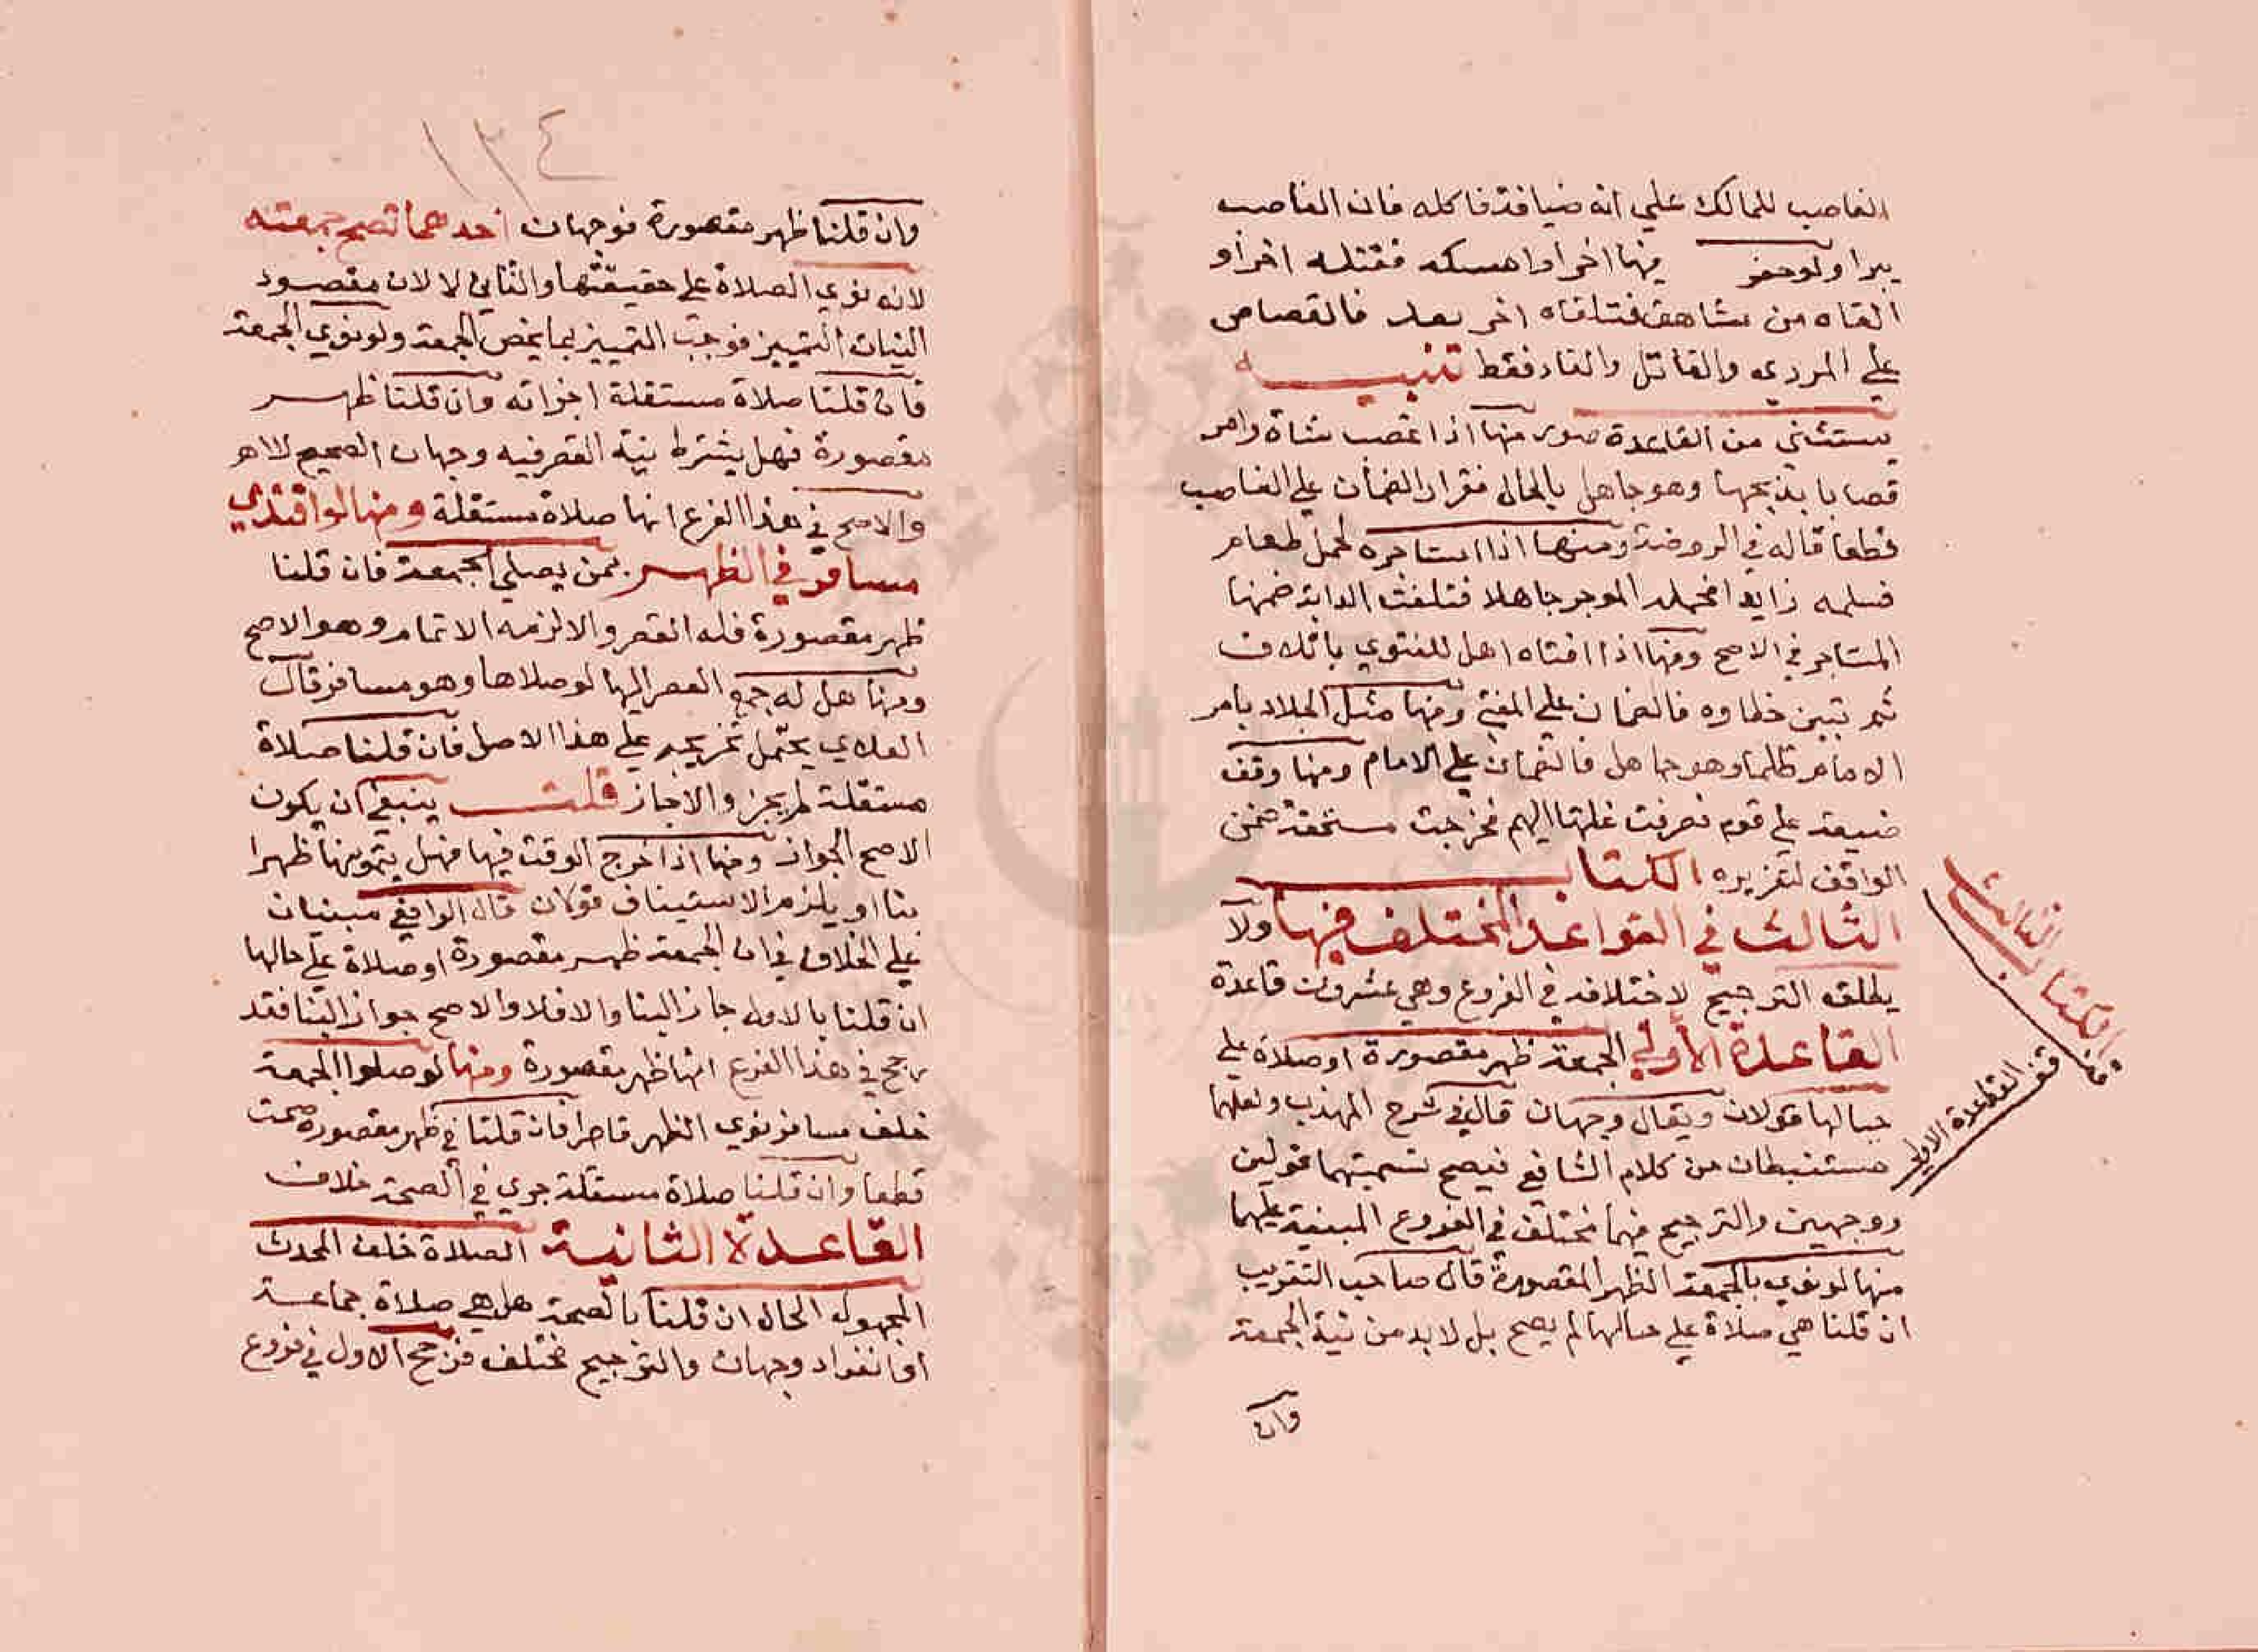 الغاصب للمالك علي انه ضيافة فاكله فان الغاصب
يبرا ولو حفر فيها اخر او امسكه فقتله اخر او
القاه من شاهق فتلقاه اخر بعد فالقصاص
علي المردي والقاتل والقاد فقط تنبيه
يستثني من القاعدة صور منها اذا غصب شاة وامر
قصابا بذبحها وهو جاهل بالحال فقرار الضمان علي الغاصب
قطعا قاله في الروضة ومنها اذا استاجره لحمل طعام
فسلمه زايدا فحمله الموجر جاهلا فتلفت الدابة ضمنها
المستاجر في الاصح ومنها اذا افتاه اهل للفتوي باتلاف
ثم تبين خطاوه فالضمان علي المفتي ومنها مثل الجلاد بامر
الامام ظلما وهو جاهل فالضمان علي الامام ومنها وقف
ضيعة علي قوم فصرفت غلتها اليهم فخرجت مستحقة ضمن
الواقف لتغريره الكتاب
الثالث في القواعد المختلف فيها ولا
يطلق الترجيح لاختلافه في الفروع وهي عشرون قاعدة
القاعدة الأولي الجمعة ظهر مقصورة او صلاة علي
حيالها قولان ويقال وجهان قال في شرح المهذب ولعلهما
مستنبطان من كلام الشافعي فيصح تسميتهما قولين
ووجهين والترجيح فيهما مختلف في الفروع المبنية عليهما
منها لو نوي بالجمعة الظهر المقصورة قال صاحب التقريب
ان قلنا هي صلاة علي حيالها لم يصح بل لا بد من نية الجمعة
وان
الكتاب الثالث
قف
قف القاعدة الاولي
١٣٤
وان قلنا ظهر مقصورة فوجهان احدهما تصح جمعته
لانه نوي الصلاة علي حقيقتها والثاني لا لان مقصود
النيات التمييز فوجب التمييز بما يخص الجمعة ولو نوي الجمعة
فان قلنا صلاة مستقلة اجزاته وان قلنا ظهر
مقصورة فهل يشترط نية القصر فيه وجهان الصحيح لا هو
والاصح في هذا الفرع انها صلاة مستقلة ومنها لو اقتدي
مسافر في الظهر بمن يصلي الجمعة فان قلنا
ظهر مقصورة فله القصر والا لزمه الاتمام وهو الاصح
ومنها هل له جمع العصر اليها لو صلاها وهو مسافر قال
العلاي يحتمل تخريجه علي هذا الاصل فان قلنا صلاة
مستقلة لم يجز والا جاز قلت ينبغي ان يكون
الاصح الجواز ومنها اذا خرج الوقت فيها فهل يتمونها ظهرا
بنا او يلزم الاستيناف قولان قال الرافعي مبنيان
علي الخلاف في ان الجمعة ظهر مقصورة او صلاة علي حالها
ان قلنا بالاول جاز البنا والا فلا والاصح جواز البنا فقد
رجح في هذا الفرع انها ظهر مقصورة ومنها لو صلوا الجمعة
خلف مسافر نوي الظهر قاصرا فان قلنا هي ظهر مقصورة صحت
قطعا وان قلنا صلاة مستقلة جري في الصحة خلاف
القاعدة الثانية الصلاة خلف المحدث
المجهول الحال ان قلنا بالصحة هل هي صلاة جماعة
او انفراد وجهان والترجيح مختلف فرجح الاول في فروع